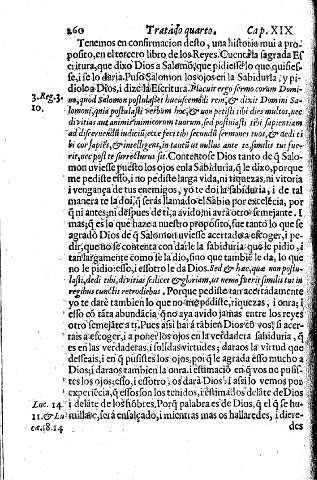 260 Tratado quarto. Cap. XIX
Tenemos en confirmacion desto, una historia mui a proposito,
en el tercero libro de los Reyes. Cuenta la sagrada Escritura,
que dixo Dios a Salomõ, que pidiesse lo que quisiesse,
i se lo daria. Puso Salomon los ojos en la Sabiduria, y pidiola
a Dios, i dize la Escritura. Placuit ergo sermo coram Domino,
3. Reg. 3. quod Salomon postulasset huiuscemodi rem, & dixit Dominus Salomoni,
10. quia postulasti verbum hoc, & non petisti tibi dies multos, nec
divitias aut animas inimicorum tuorum, sed postulasti tibi sapientiam
ad discernendũ iudiciũ, ecce feci tibi secundũ sermones tuos, & dedi tibi
cor sapiẽs, & intelligens, in tantũ ut nullus ante te similis tui fuerit,
nec post te surrecturus sit. Contentose Dios tanto de q̃ Salomon
uviesse puesto los ojos en la Sabiduria, q̃ le dixo, porque
me pediste esso, i no pediste larga vida, ni riquezas, ni vitoria
i vengança de tus enemigos, yo te doi la sabiduria, i de tal
manera te la doi, q̃ seràs llamado el Sabio por excelẽcia, por
q̃ ni antes, ni despues de ti, a avido, ni avrà otro semejante. I
mas, q̃ es lo que haze a nuestro proposito, fue tanto lo que se
agradò Dios de q̃ Salomon uviesse acertado a escoger, i pedir,
que no se contenta con darle la sabiduria que le pidio, i
tan largamente como se la dio, sino que tambiẽ le da, lo que
no le pidio: esso, i essotro le da Dios. Sed & hæc, quæ non postulasti,
dedi tibi, divitias scilicet & gloriam, ut nemo fuerit similis tui in
regibus cunctis retro diebus. Porque pediste tan acertadamente
yo te darè tambien lo que no me pediste, riquezas, i onra; i
esso cõ tãta abundãcia, q̃ no aya avido jamas entre los reyes
otro semejãte a ti. Pues assi harà tãbien Dios cõ vos, si acertais
a escoger, i a poner los ojos en la verdadera sabiduria, q̃
es en las verdaderas, i solidas virtudes; daraos la virtud que
desseais, i en q̃ pusistes los ojos, por q̃ le agrada esso mucho a
Dios; i daraos tambien la onra, i estimaciõ en q̃ vos no pusistes
los ojos; esso, i essotro, os darà Dios: I assi lo vemos por
experiẽcia, q̃ essos son los tenidos, i estimados delãte de Dios
Luc. 14. i delãte de los hõbres. Porq̃ palabra es de Dios, q̃ el q̃ se hu
11. & Lu milla, serà ensalçado, i mientras mas os hallaredes, i diere-
cæ. 18. 14 des